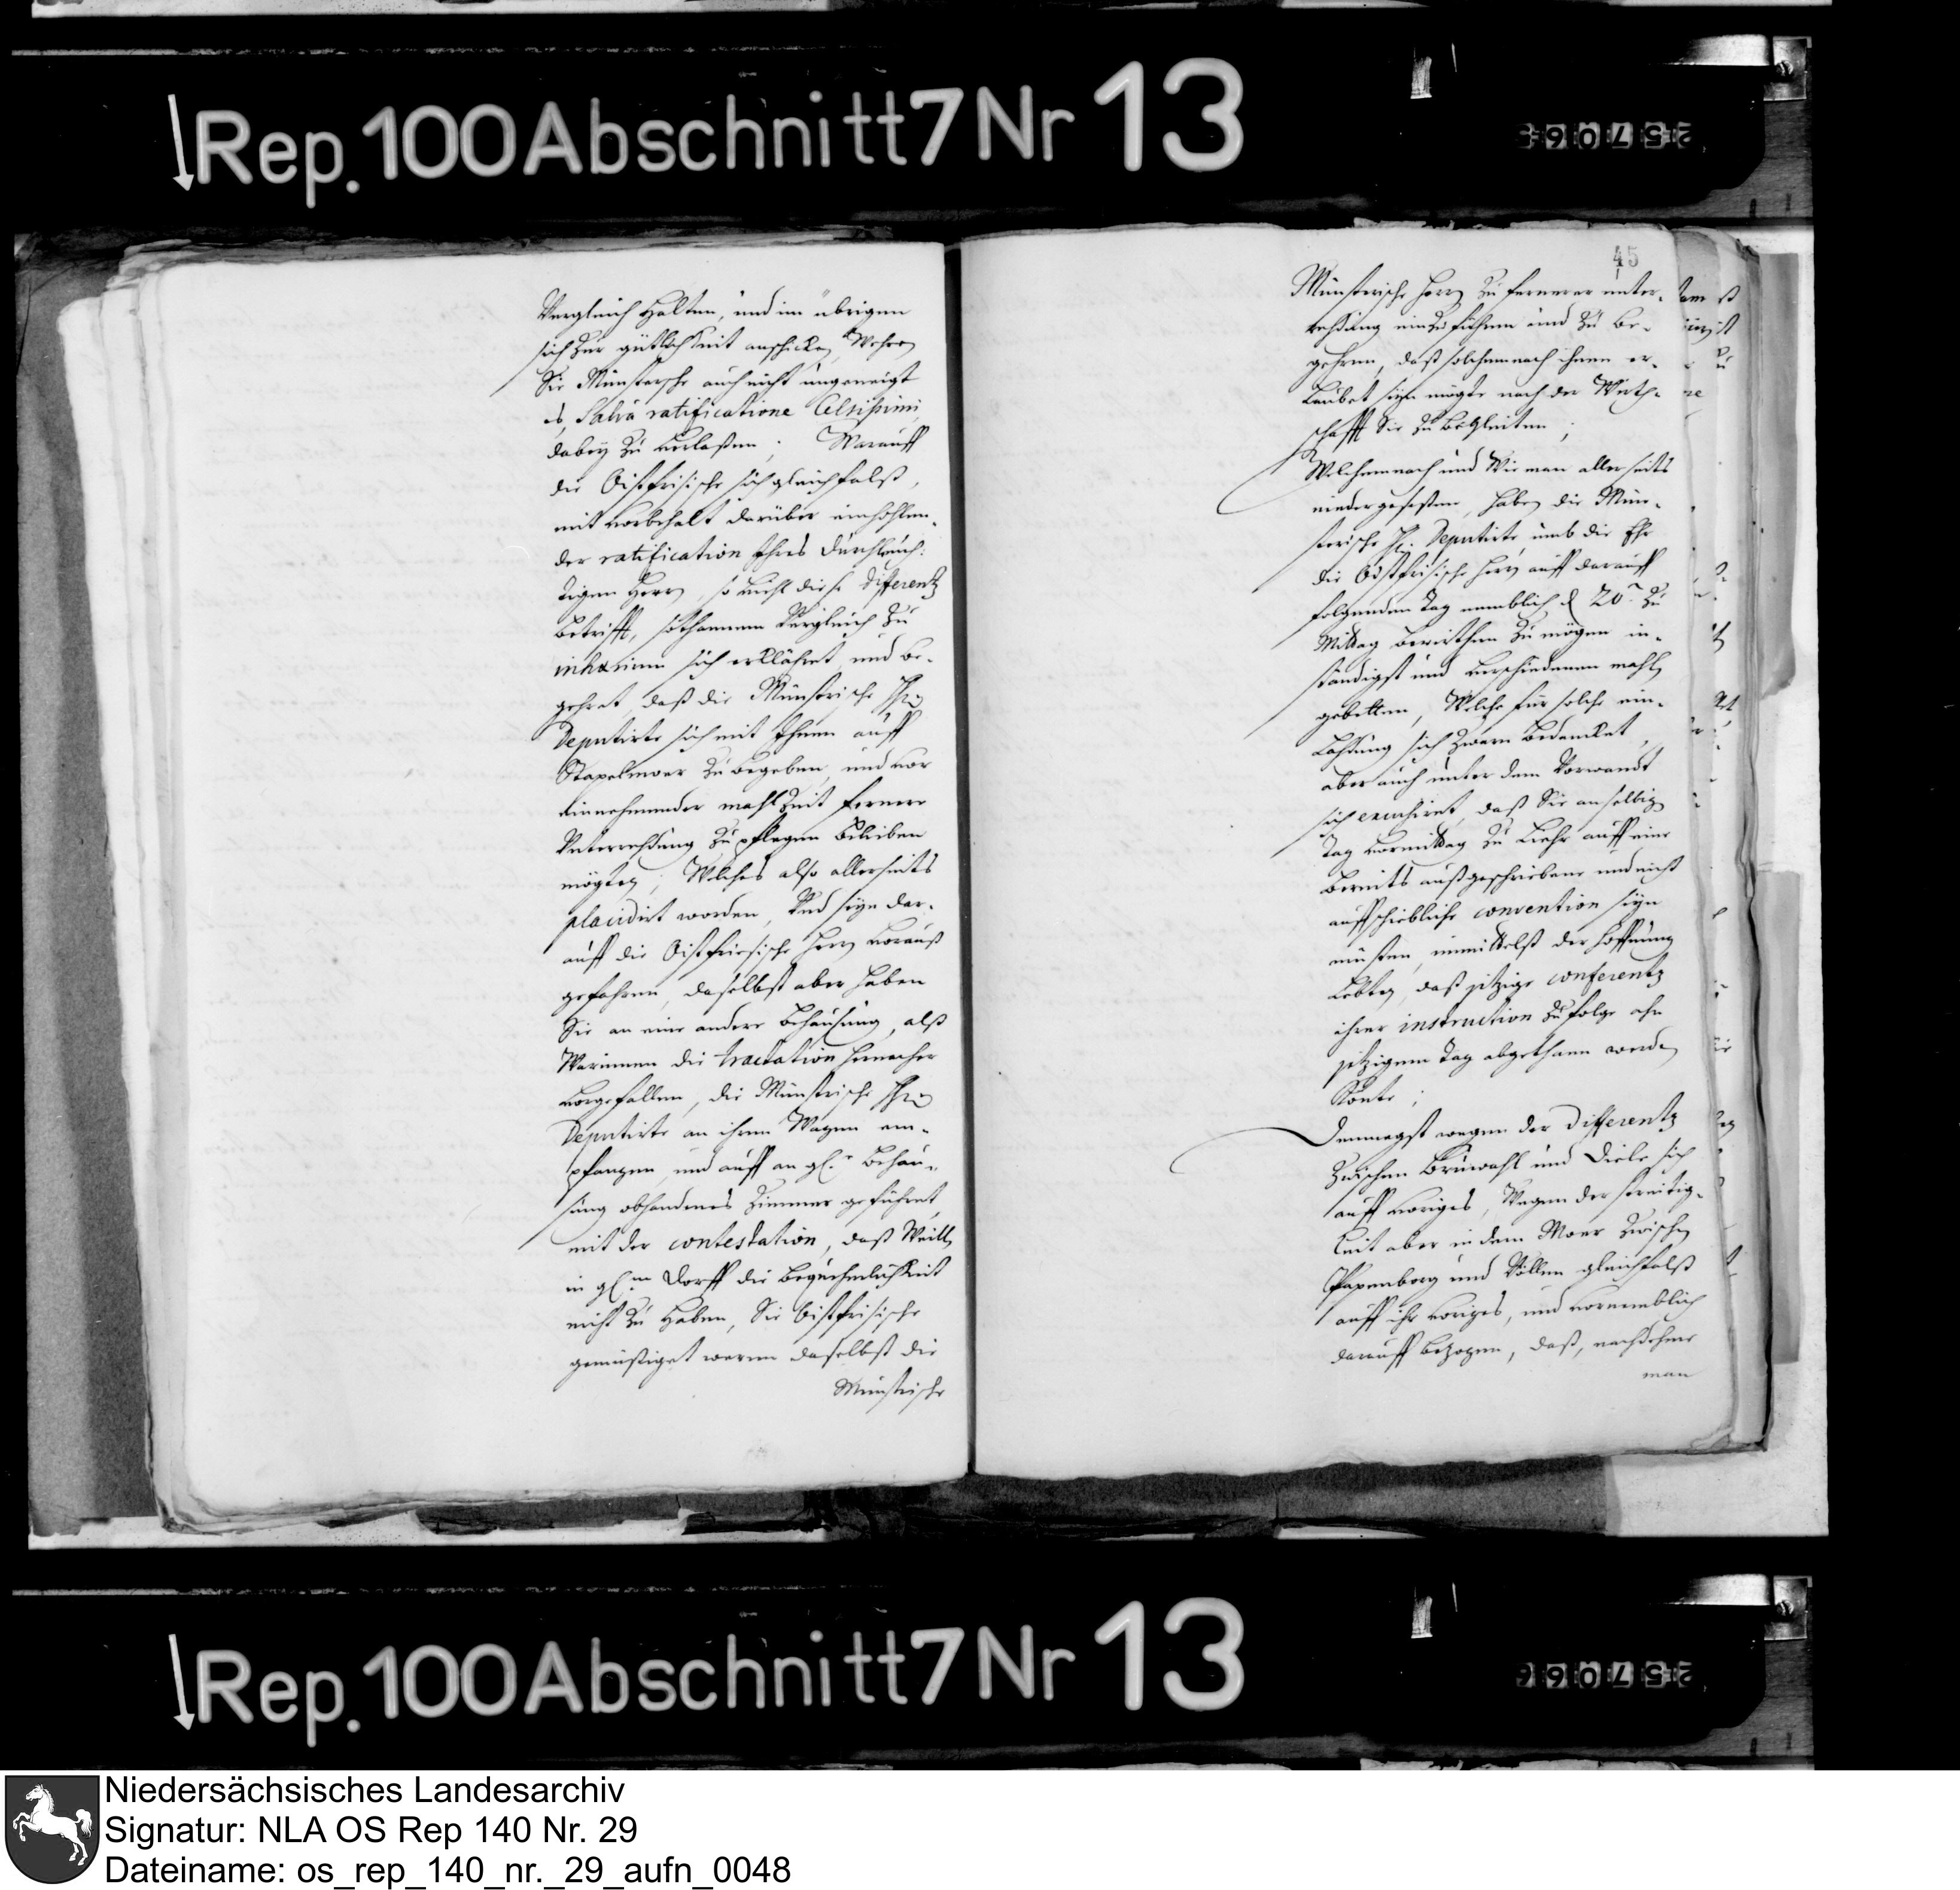 Rep. 100 Abschnitt 7 Nr 13
Vergleich halten, und im übrigen
sich zur gütlichkeit anschicken, Wehren
Sie Münstersche auch nicht ungeneigt
es, Salvâ ratificatione Celsissimi
dabey zu verlaßen; Warauff
die Oistfrisische sich gleichfalß,
mit vorbehalt darüber einhohlen-
der ratification Ihres durchleuch-
tigen Herrn, so viehl diese differentz
betrifft, sothannem Vergleich zu
inhærirn sich erklähret, und be-
gehret, daß die Münsterische
Deputirte sich mit Ihnen auff
Stapelmoer zu begeben, und vor
einnehmender mahlzeit fernere
Unterredung zu pflegen belieben
mögten; Welches also allerseits
placidirt worden, Und seyn dar-
auff die Oistfriesische Herrn vorauß
gefahren, daselbst aber haben
Sie an eine andere behausung, alß
Warinnen die tractation hernacher
vorgefallen, die Münstrische
Deputirte an ihren Wagen em-
pfangen, und auff an gl.r behau-
sung obhandenes Zimmer geführet,
mit der contestation, daß Weill
in gl.m Dorff die bequehmlichkeit
nicht zu haben, Sie Oistfrisische
gemüßiget weren daselbst die
Münstrische
45
Münsterische Herrn zu fernerer unter-
redung einzuführen und zu be-
gehren, daß solchemnach ihnen er-
laubet seyn mögte nach der Wirth-
schafft Sie zu begleiten;
Welchemnach und Wie man allerseits
niedergeseßen, haben die Mün-
sterische Deputirte umb die Ehr
die Oistfrisische Herrn auff darauff
folgenden Tag nemblich d 20.n zu
Mittag bewirthen zu mögen in-
ständigst und verschiedenen mahl
gebetten, Welche für solche ein-
ladung sich zwarn bedancket,
aber auch unter dem Vorwandt
sich excusiret, daß Sie anselbigen
Tag vormittag zu Liehr auff eine
bereits außgeschriebene und nicht
auffschiebliche convention seyn
müsten, inmittelst der hoffnung
lebten, daß jtzige conferentz
ihrer instruction zufolge ahn
jtzigem Tag abgethaen werden
könte;
Demnegst wegen der differentz
zwischen Brüwahl und Diele sich
auff voriges, Wegen der streitig-
keit aber in dem Moer zwischen
Papenborg und Völlen gleichfalß
auff ihr voriges, und vornemblich
darauff bezogen, daß, nachdehme
man
Rep. 100 Abschnitt 7 Nr 13
Niedersächsisches Landesarchiv
Signatur: NLA OS Rep 140 Nr. 29
Dateiname: os_rep_140_nr._29_aufn_0048